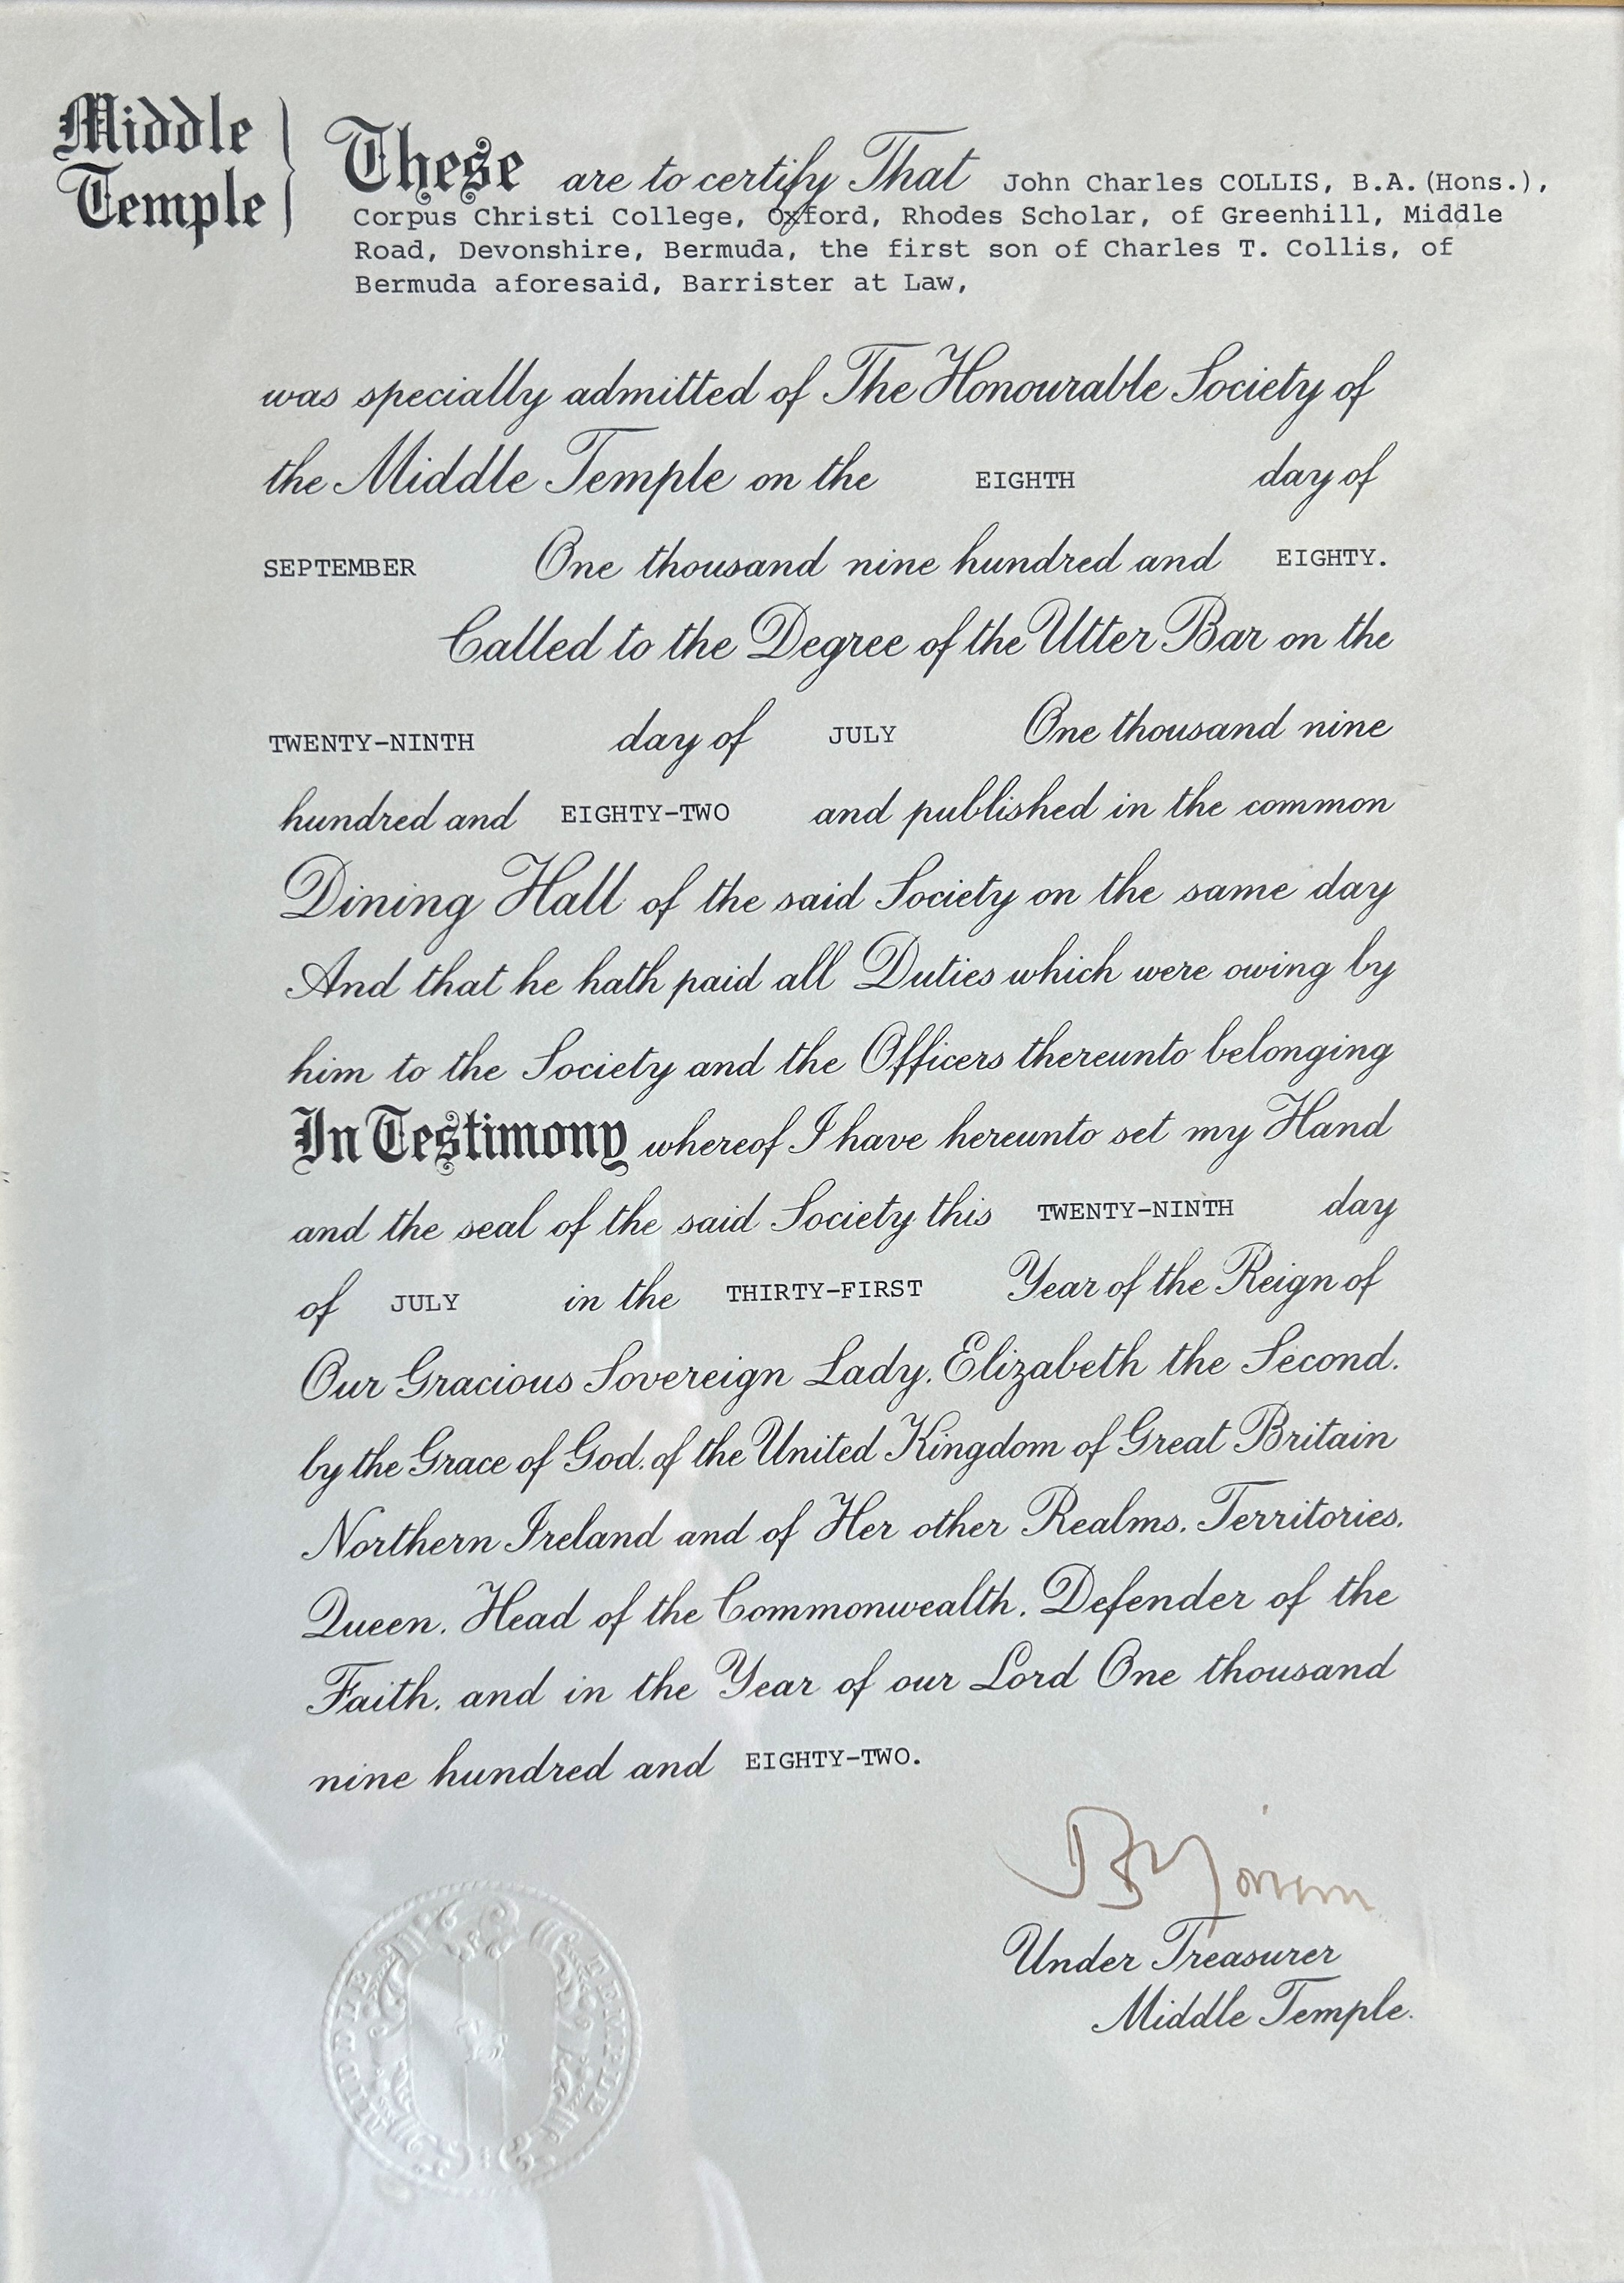 Middle
Temple
These are to certify That John Charles COLLIS, B.A.(Hons.),
Corpus Christi College, Oxford, Rhodes Scholar, of Greenhill, Middle
Road, Devonshire, Bermuda, the first son of Charles T. Collis, of
Bermuda aforesaid, Barrister at Law,
was specially admitted of The Honourable Society of
the Middle Temple on the EIGHTH day of
SEPTEMBER One thousand nine hundred and EIGHTY.
Called to the Degree of the Utter Bar on the
TWENTY-NINTH day of JULY One thousand nine
hundred and EIGHTY-TWO and published in the common
Dining Hall of the said Society on the same day
And that he hath paid all Duties which were owing by
him to the Society and the Officers thereunto belonging
In Testimony whereof I have hereunto set my Hand
and the seal of the said Society this TWENTY-NINTH day
of JULY in the THIRTY-FIRST Year of the Reign of
Our Gracious Sovereign Lady. Elizabeth the Second.
by the Grace of God. of the United Kingdom of Great Britain
Northern Ireland and of Her other Realms. Territories.
Queen. Head of the Commonwealth. Defender of the
Faith. and in the Year of our Lord One thousand
nine hundred and EIGHTY-TWO.
Under Treasurer
Middle Temple.
MIDDLE TEMPLE